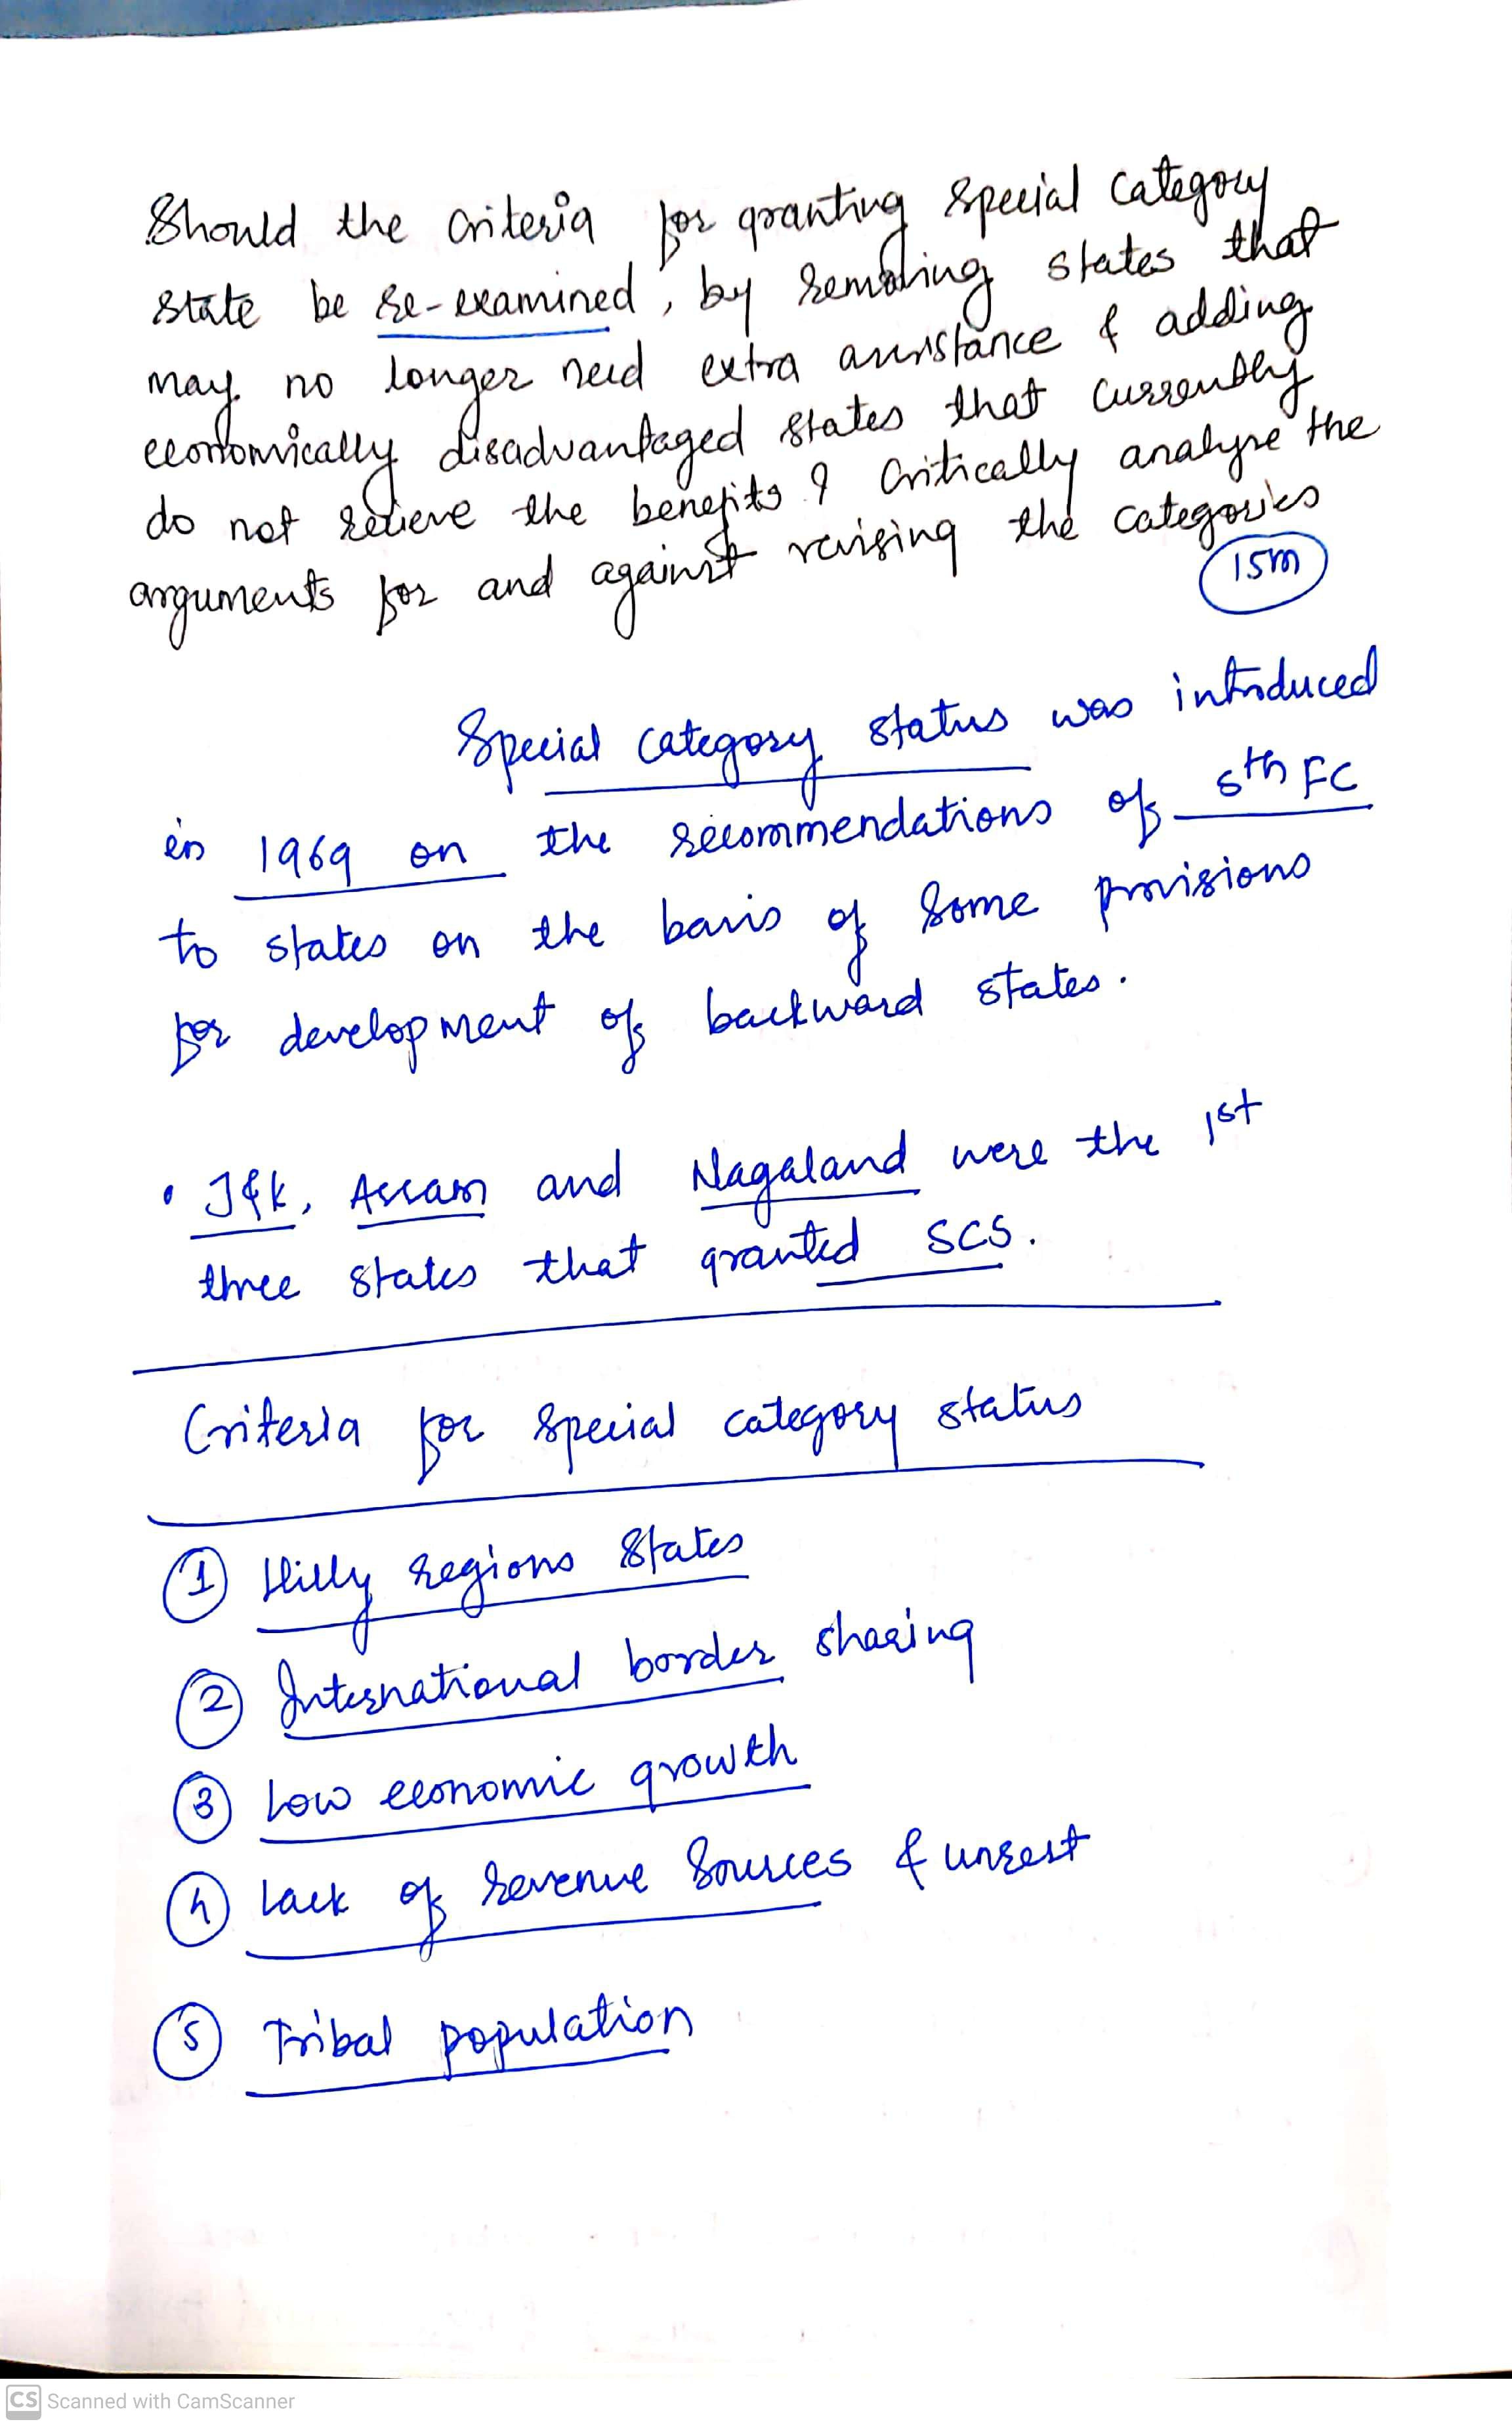 Should the criteria for granting special category
state be re-examined, by removing states that
may no longer need extra assistance & adding
economically disadvantaged states that currently
do not recieve the benefits? Critically analyse the
arguments for and against revising the categories
15m
Special category status was introduced
in 1969 on the recommendations of 5th FC
to states on the basis of some provisions
for development of backward states.
• J&K, Assam and Nagaland were the 1st
three states that granted SCS.
Criteria for special category status
① Hilly regions states
② International border sharing
③ Low economic growth
④ Lack of revenue sources & unrest
⑤ Tribal population
CS Scanned with CamScanner